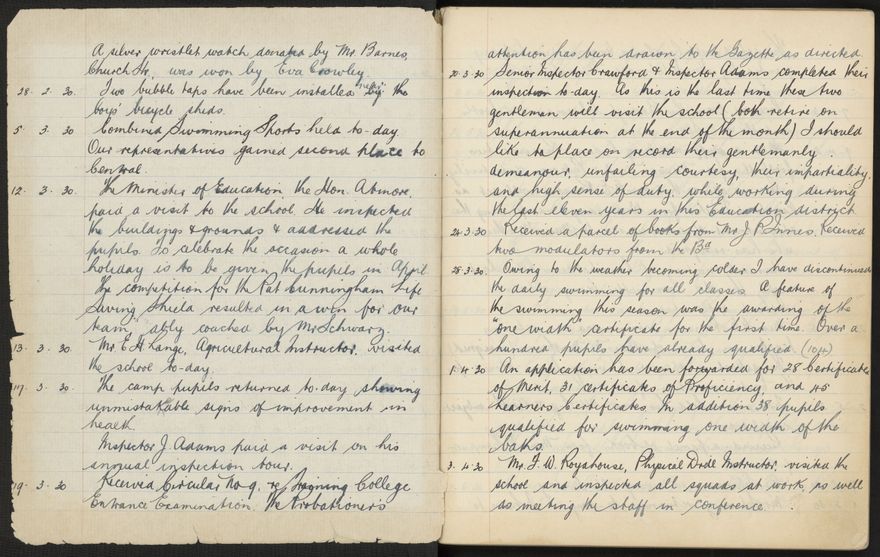 A silver wristlet watch donated by Mr. Barnes,
Church St., was won by Eva Crowley.
28. 2. 30. Two bubble taps have been installed near the
boys' bicycle sheds.
5. 3. 30 Combined Swimming Sports held to-day
Our representatives gained second place to
Central.
12. 3. 30. The Minister of Education the Hon. Atmore
paid a visit to the school. He inspected
the buildings & grounds & addressed the
pupils. To celebrate the occasion a whole
holiday is to be given the pupils in April
The competition for the Pat Cunningham Life
Saving Shield resulted in a win for our
team, ably coached by Mr Schwarz.
13. 3. 30. Mr. E. H. Lange, Agricultural Instructor, visited
the school to-day.
17. 3. 30. The camp pupils returned to-day showing
unmistakable signs of improvement in
health.
Inspector J. Adams paid a visit on his
annual inspection tour.
19. 3. 30 Received Circular No 9. re Training College
Entrance Examination. The Probationers'
attention has been drawn to the Gazette as directed.
20.3.30 Senior Inspector Crawford & Inspector Adams completed their
inspection to-day. As this is the last time these two
gentlemen will visit the school (both retire on
superannuation at the end of the month) I should
like to place on record their gentlemanly
demeanour, unfailing courtesy, their impartiality,
and high sense of duty while working during
the last eleven years in this Education district
24.3.30 Received a parcel of books from Mr J. P. Innes. Received
two modulators from the Bd
28.3.30. Owing to the weather becoming colder I have discontinued
the daily swimming for all classes. A feature of
the swimming this season was the awarding of the
"one width" certificate for the first time. Over a
hundred pupils have already qualified.
1.4.30 An application has been forwarded for 28 Certificates
of Merit, 31 Certificates of Proficiency, and 45
Learners Certificates. In addition 38 pupils
qualified for swimming one width of the
baths.
3. 4. 30 Mr. F. W. Royshouse, Physical Drill Instructor, visited the
school and inspected all squads at work, as well
as meeting the staff in conference.